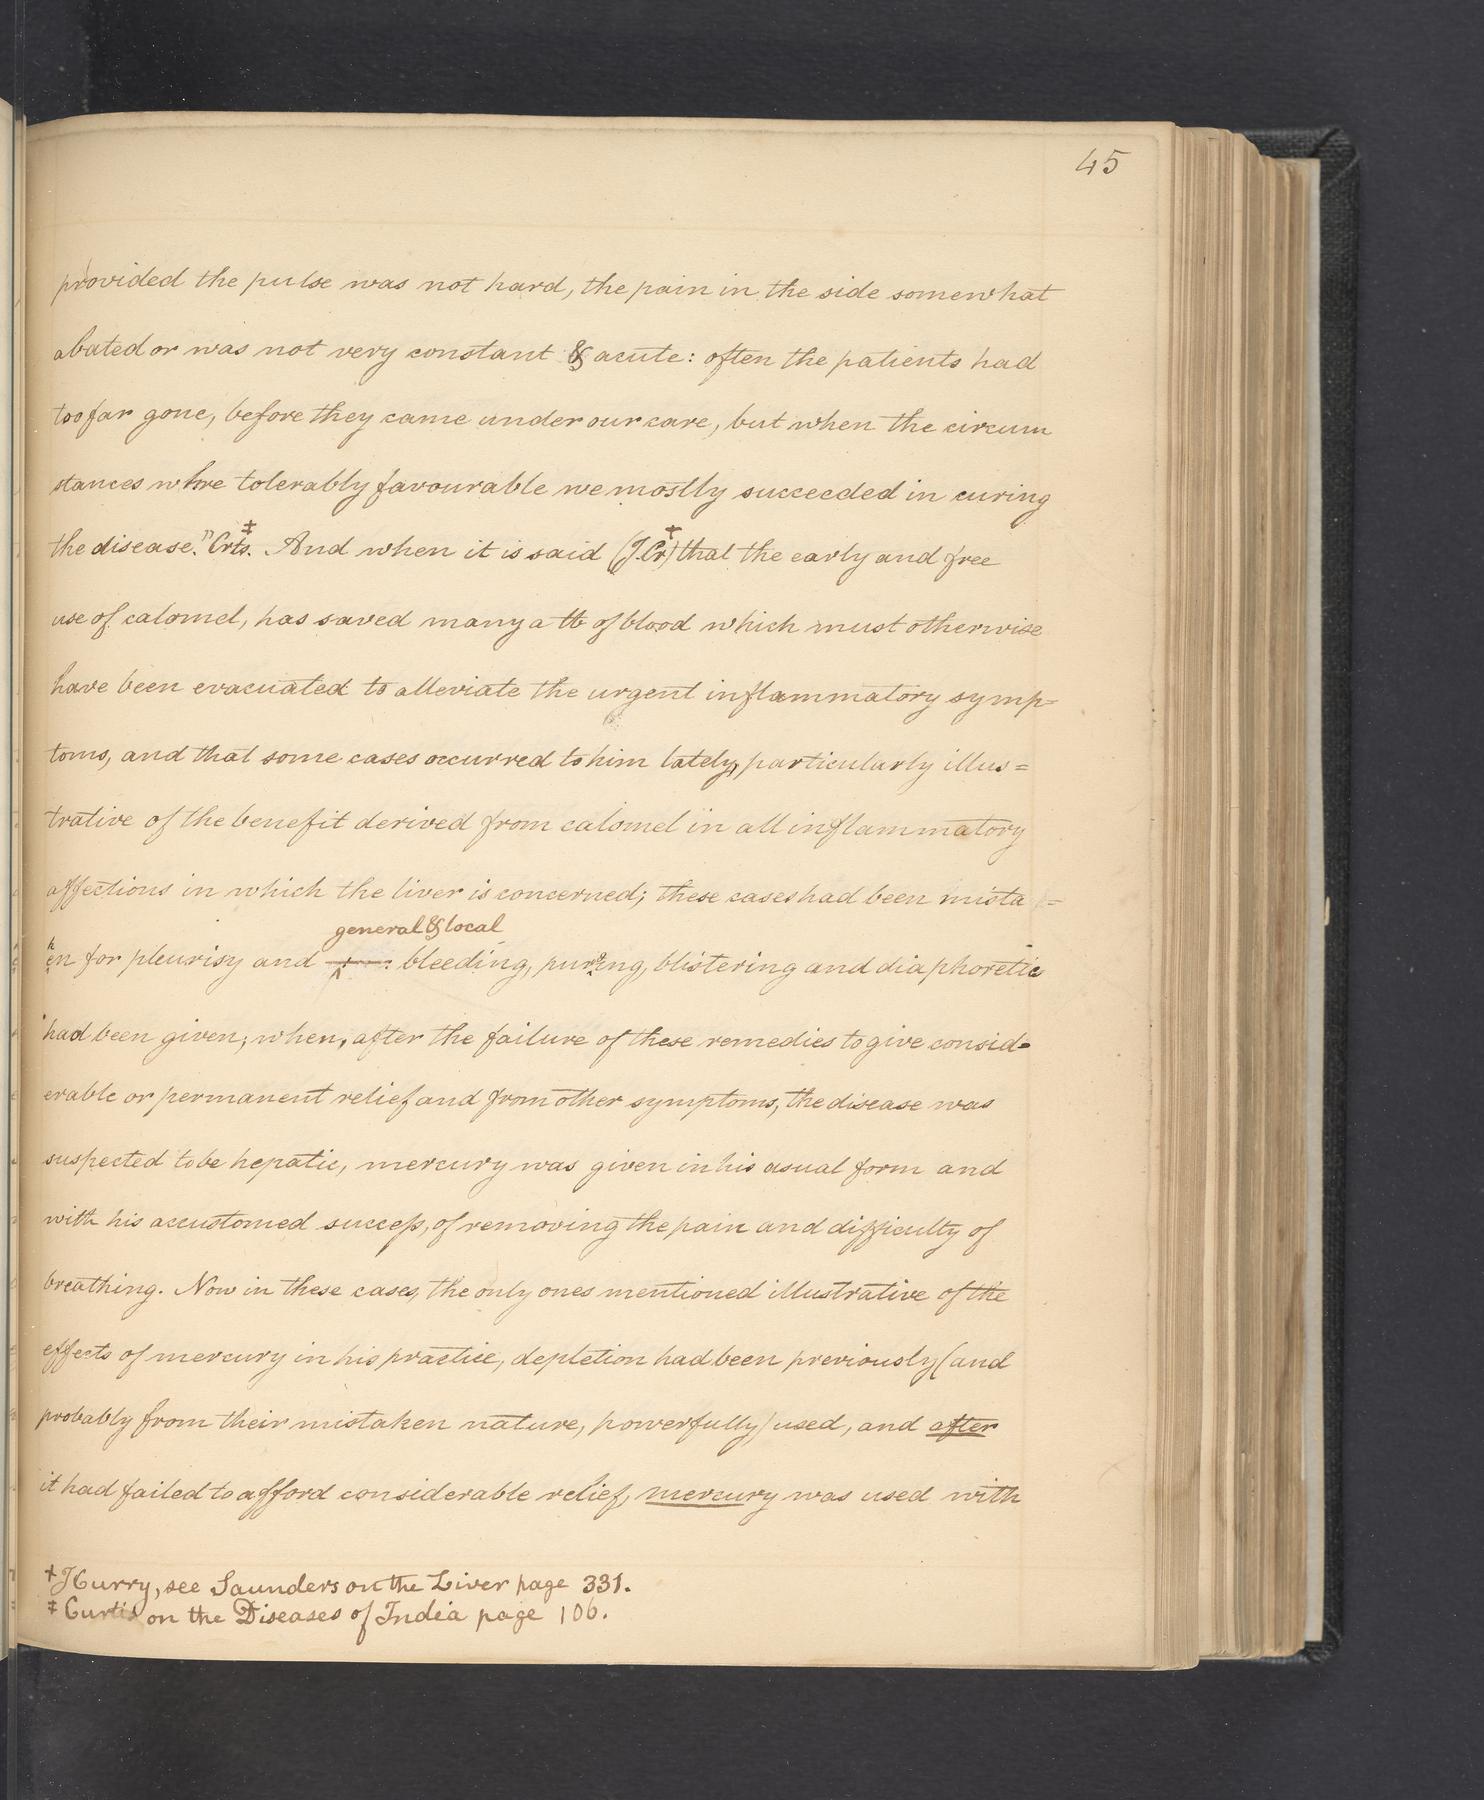 45
provided the pulse was not hard, the pain in the side somewhat
abated or was not very constant & acute: often the patients had
too far gone, before they came under our care, but when the circum
stances where tolerably favourable we mostly succeeded in curing
the disease." Crts.‡ And when it is said (J.Cr†) that the early and free
use of calomel, has saved many a ℔ of blood which must otherwise
have been evacuated to alleviate the urgent inflammatory symp=
toms, and that some cases occurred to him lately, particularly illus=
trative of the benefit derived from calomel in all inflammatory
affections in which the liver is concerned; these cases had been mista=
general & local
ken for pleurisy and bleeding, purging, blistering and diaphoretic
had been given; when, after the failure of these remedies to give consid=
erable or permanent relief and from other symptoms, the disease was
suspected to be hepatic, mercury was given in his usual form and
with his accustomed success, of removing the pain and difficulty of
breathing. Now in these cases, the only ones mentioned illustrative of the
effects of mercury in his practice, depletion had been previously (and
probably from their mistaken nature, powerfully) used, and after
it had failed to afford considerable relief, mercury was used with
† J Curry, see Saunders on the Liver page 331.
‡ Curtis on the Diseases of India page 106.